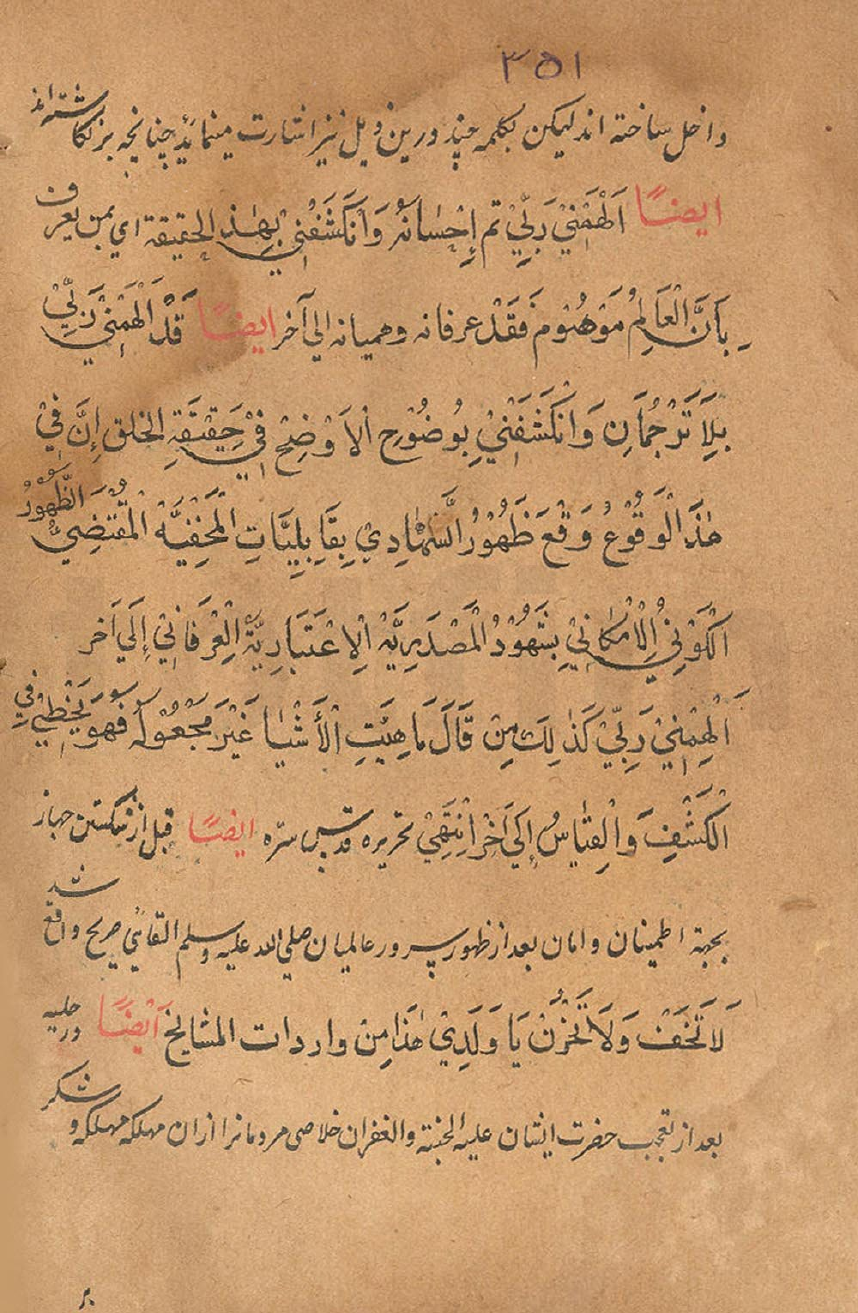 ۳۵۱
داخل ساخته اند لیکن بکلمه چند درین ذیل نیز اشارت مینماید چنانچه بر نگاشته اند
ایضًا اَلْهَمَنِیْ رَبِّیْ تم اِحْسَانُهُ وَانْکَشَفَنِیْ بِهٰذِهِ الحقیقة ای بمن یعرف
بِاَنَّ الْعَالَمُ مَوْهُوْم فَقَدْ عرفانه وهمیانه الی آخر ایضًا قَدْ اَلْهَمَنِیْ رَبِّیْ
بِلَا تَرْجُمَانِ وَانْکَشَفَنِیْ بِوُضُوْحِ الاَوْضِحْ فِیْ حَقِیْقَةِ الخلق اِنَّ فِیْ
هٰذَ الْوَقُوْعُ وَقْعَ ظَهُوْرُ بِقَابِلِیَّاتِ الْمَخْفِیَّة الْمُقْتَضِیُّ الظُّهُوْرُ
الْکَوْنِیُ الْاِمْکَانِیْ الْمَصْدَرِیَّة الْاِعْتَبَارِیَّة الْعِرْفَانِیْ اِلَی آخر
اَلْهَمَنِیْ رَبِّیْ کَذٰلِكَ مِنْ قَالَ مَاهِیَّتِ الْاَشْیَا غَیْرَ مَجْعُوْلَه فَهُوَ یَخْطِیْ فِی
الْکَشْفِ وَالْقِیَاسُ اِلَی آخَرْ اِنْتَهِیْ تحریره قدس سرّه ایضًا قبل از شکستن جهاز
بجهة اطمینان و امان بعد از ظهور سرور عالمیان صلی الله علیه وسلم القائی صریح واقع شد
لَا تَخَفْ وَلَا تَحْزَنْ یَا وَلَدِیْ هٰذَا مِنْ واردات المشایخ ایْضًا در حلیه
بعد از تعجب حضرت ایشان علیه الجنة والغفران خلاصی مردمانرا ازان مهلکه مهلکه و شکر